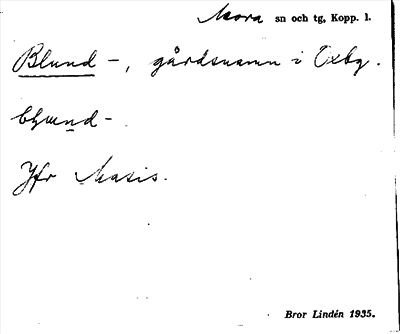 Mora sn och tg, Kopp. l.
Blund -, gårdsnamn i Oxbg.
Jfr Masis.
Bror Lindén 1935.